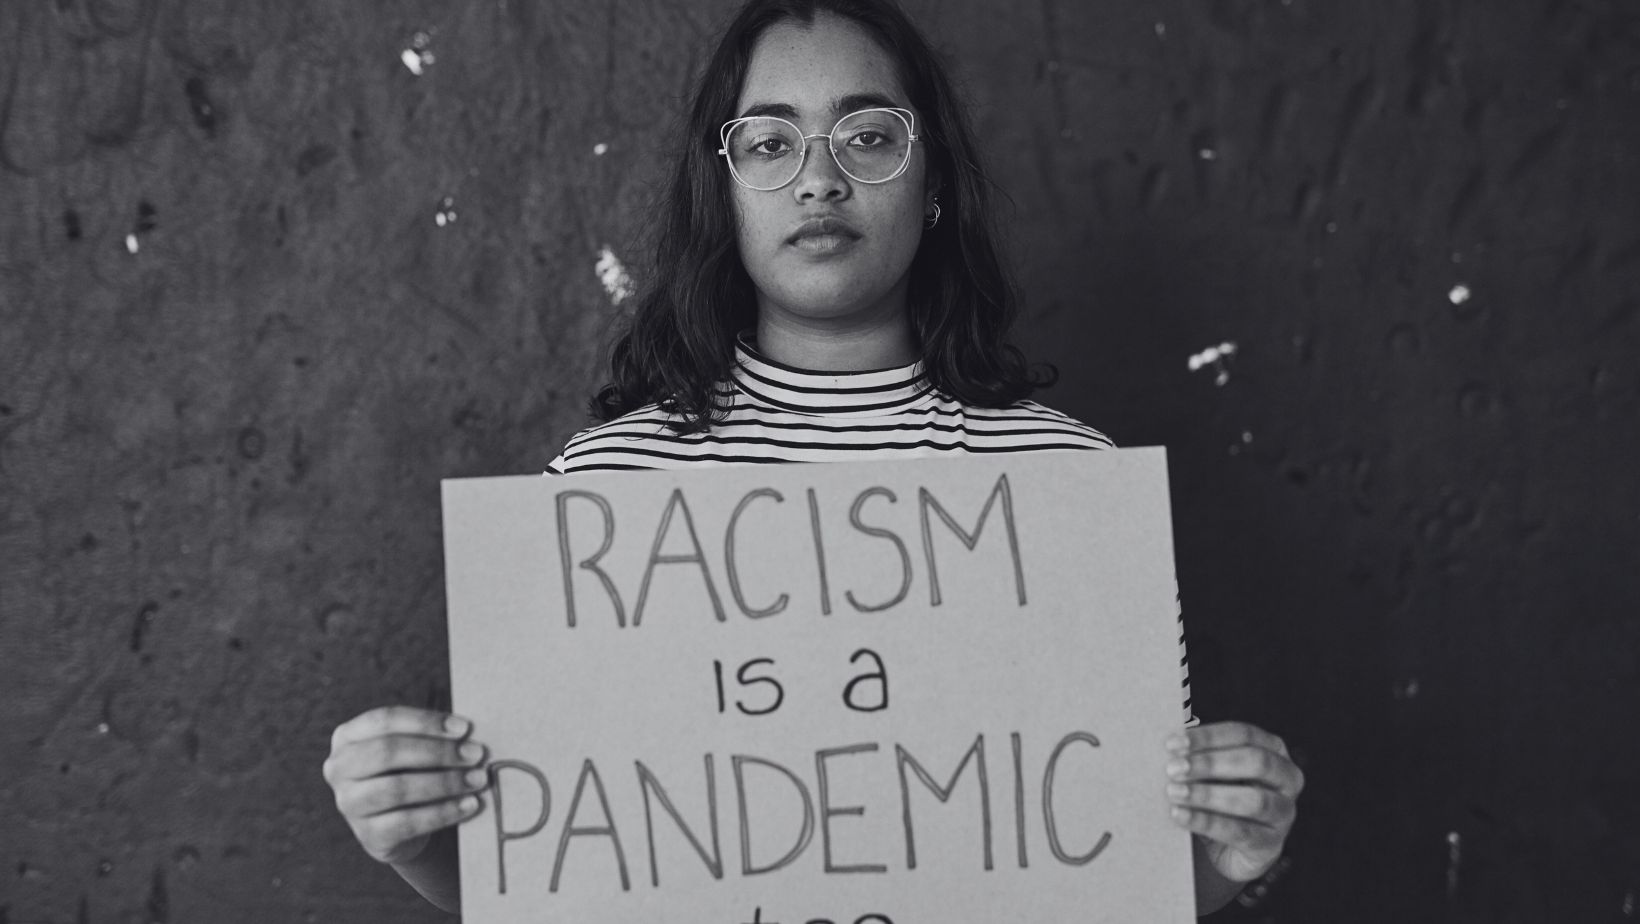 RACISM
is a
PANDEMIC
too